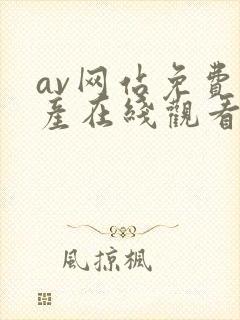 av网站免費
産在綫觀看
風掠楓